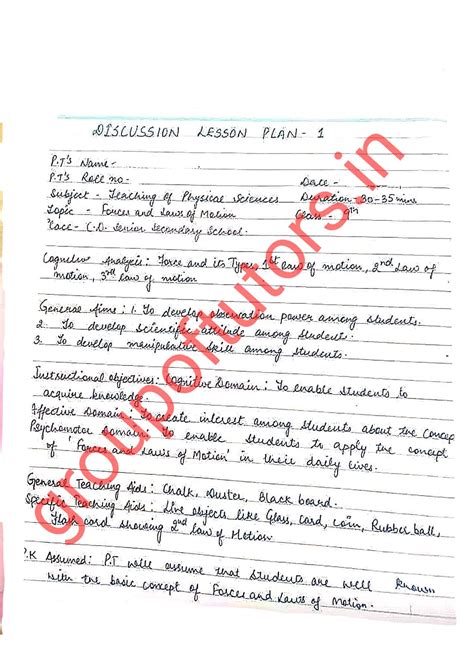 DISCUSSION LESSON PLAN - 1
P.T's Name:-
P.T's Roll no.- Date -
Subject - Teaching of Physical Sciences Duration - 30-35 mins
Topic - Forces and Laws of Motion Class - 9th
Place - C.D. Senior Secondary School.
Cognitive Analysis: Force and its Types, 1st law of motion, 2nd Law of
motion, 3rd law of motion
General Aims: 1. To develop observation power among students.
2. To develop Scientific attitude among Students.
3. To develop manipulative skill among students.
Instructional objectives: Cognitive Domain: To enable students to
acquire knowledge.
Effective Domain: To create interest among students about the concept
Psychomotor Domain: To enable students to apply the concept
of 'Forces and Laws of Motion' in their daily lives.
General Teaching Aids: Chalk, Duster, Black board.
Specific Teaching Aids: Live objects like Glass, Card, Coin, Rubber ball,
Flash card showing 2nd law of Motion
P.K Assumed: P.T will assume that students are well known
with the basic concept of Forces and Laws of Motion.
groupoftutors.in